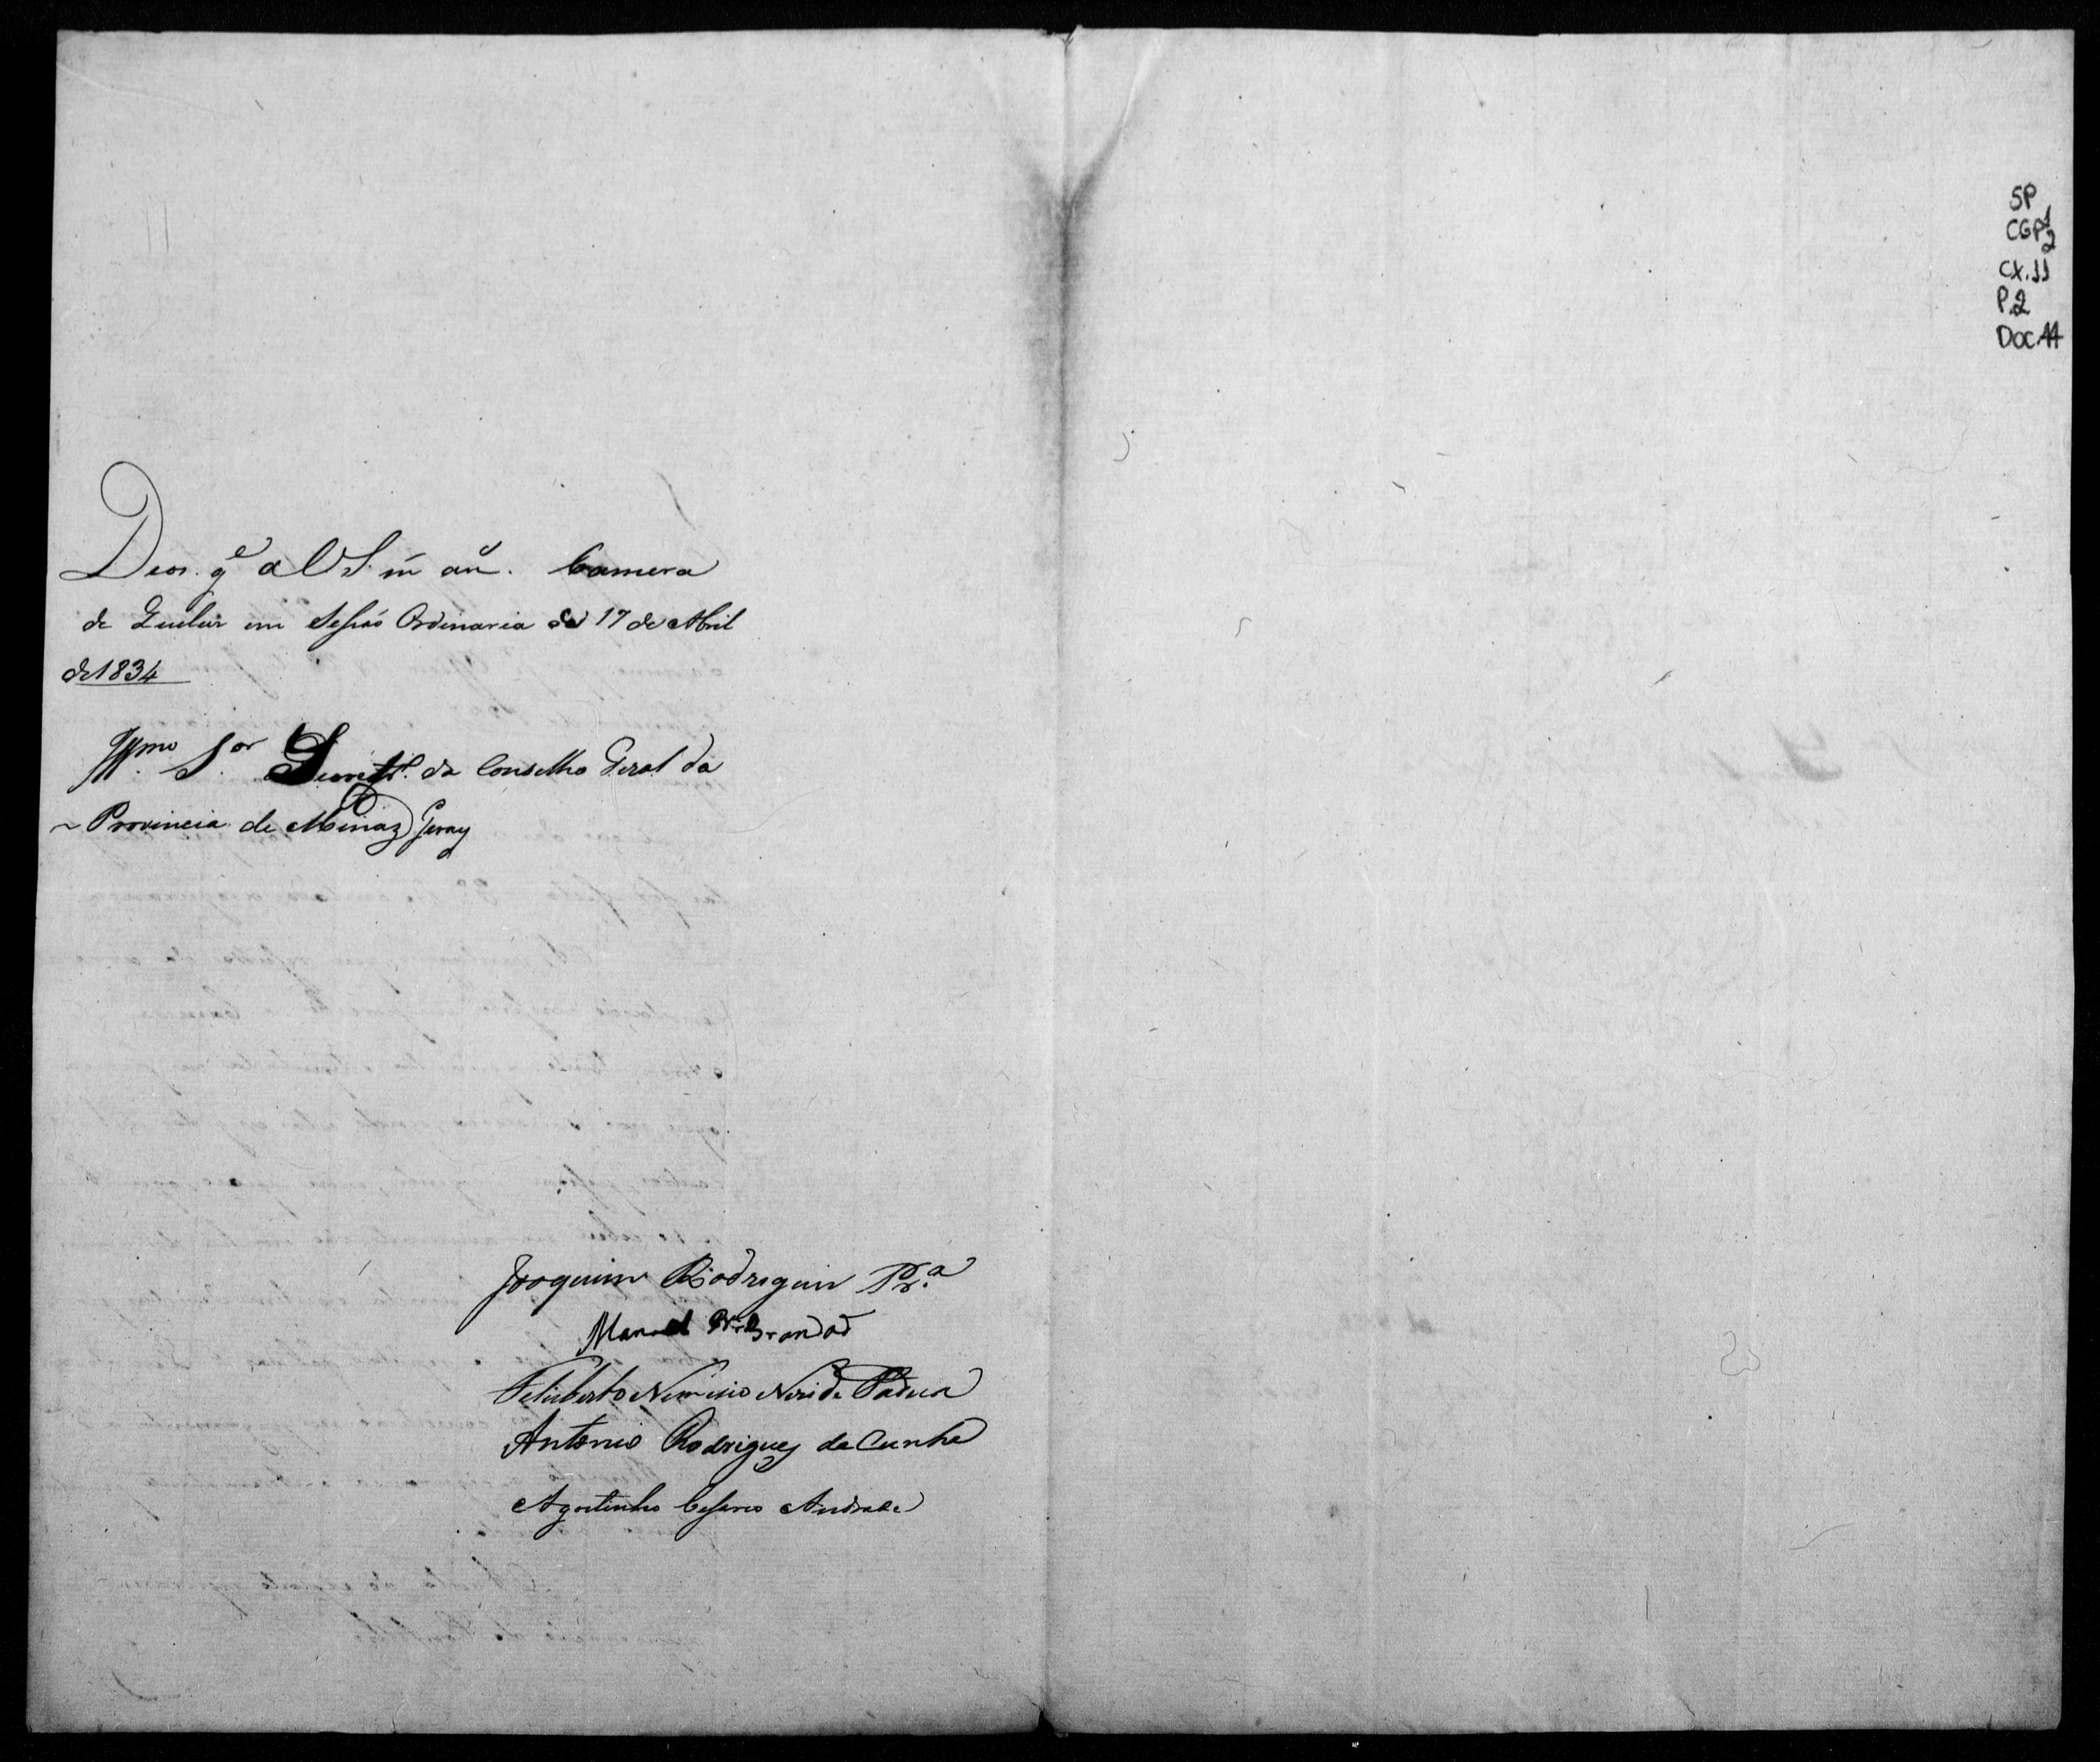 Deos g.e a V S. m an.s Camera
de Queluz em Sessaõ Ordinaria de 17 de Abril
de 1834
Ill.mo S.or Secret.o do Conselho Geral da
Provincia de Minas Geraes
Joaquim Rodrigues Pr.a
Manoel
Feliberto Nemisio Neri de Padua
Antonio Rodrigues da Cunha
Agostinho Cesario Andrade
SP
CGP 1
2
CX.11
P.2
DOC.44